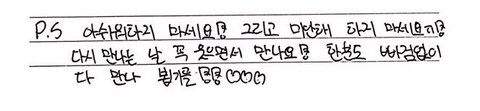 P.S 아쉬워하지 마세요!! 그리고 미안해 하지 마세요!!
다시 만나는 날 꼭 웃으면서 만나요!! 한분도 빠짐없이
다 만나 뵙기를 !! !! ♡♡♡